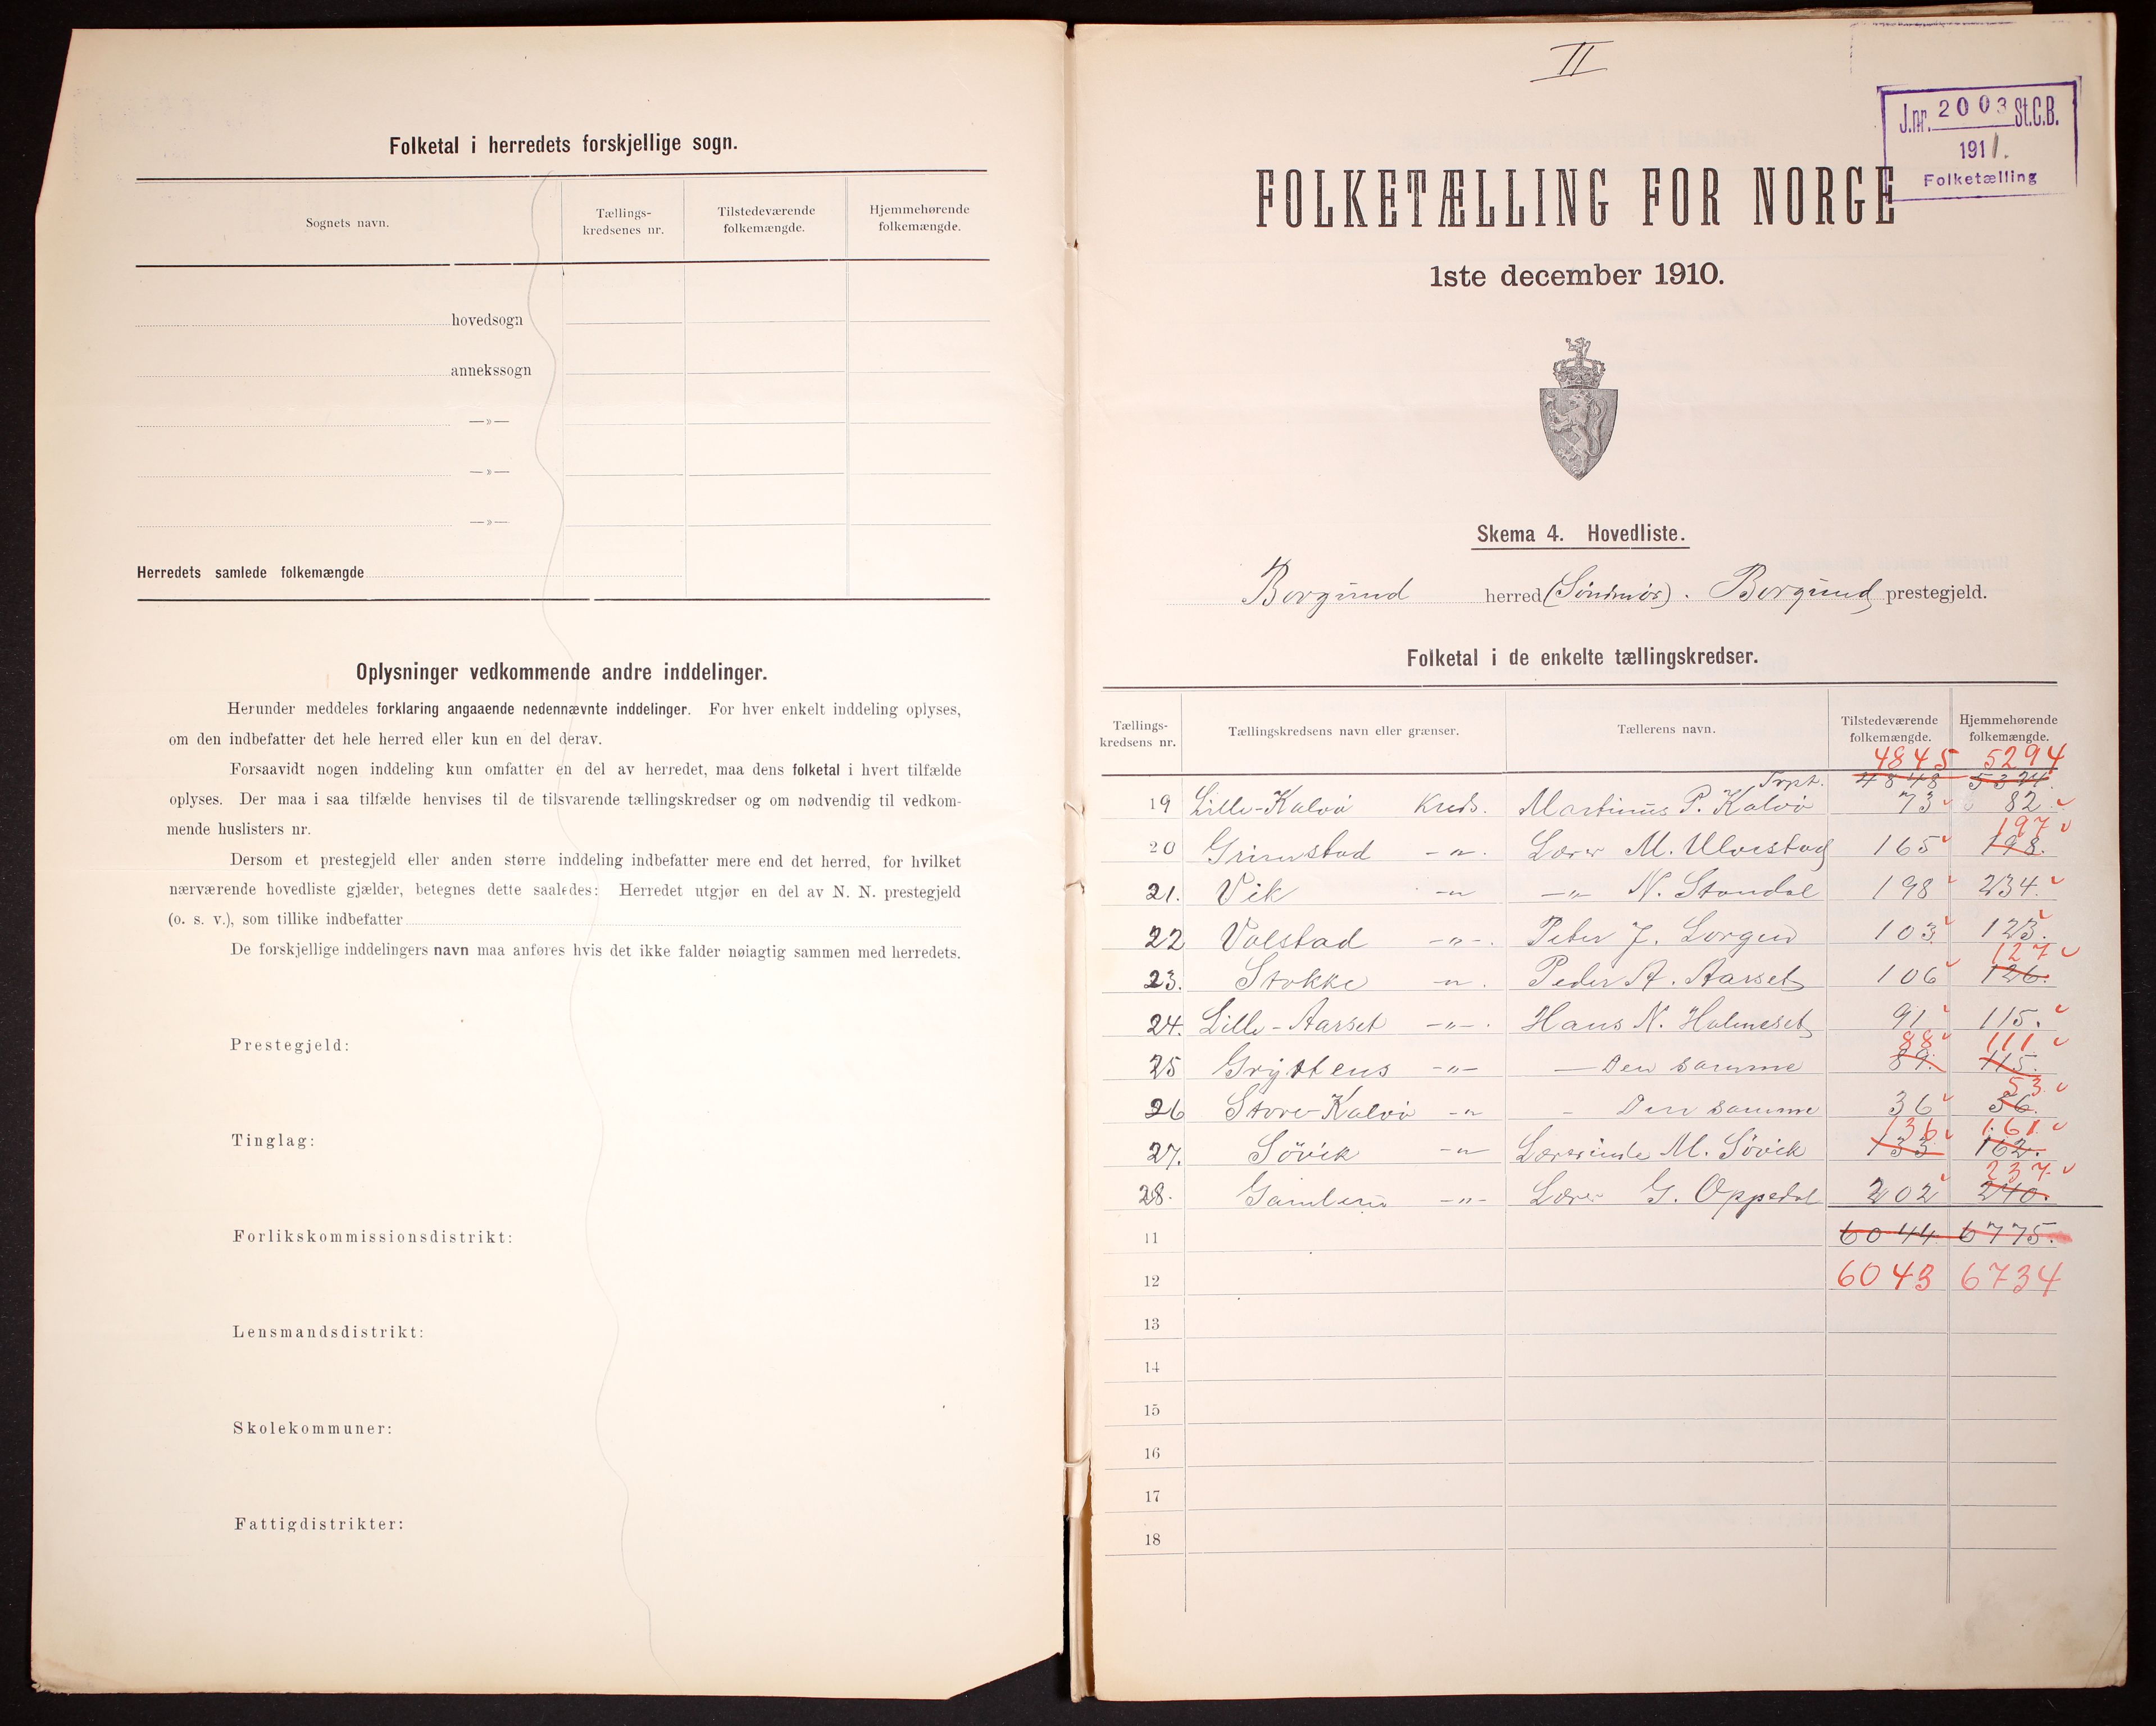 Folketal i herredets forskjellige sogn.
Sognets navn.
Tællings-
kredsenes nr.
Tilstedeværende
folkemængde.
Hjemmehørende
folkemængde.
hovedsogn
annekssogn
—»—
—»—
—»—
Herredets samlede folkemængde
Oplysninger vedkommende andre inddelinger.
Herunder meddeles forklaring angaaende nedennævnte inddelinger. For hver enkelt inddeling oplyses,
om den indbefatter det hele herred eller kun en del derav.
Forsaavidt nogen inddeling kun omfatter en del av herredet, maa dens folketal i hvert tilfælde
oplyses. Der maa i saa tilfælde henvises til de tilsvarende tællingskredser og om nødvendig til vedkom-
mende huslisters nr.
Dersom et prestegjeld eller anden større inddeling indbefatter mere end det herred, for hvilket
nærværende hovedliste gjælder, betegnes dette saaledes: Herredet utgjør en del av N. N. prestegjeld
(o. s. v.), som tillike indbefatter
De forskjellige inddelingers navn maa anføres hvis det ikke falder nøiagtig sammen med herredets.
Prestegjeld:
Tinglag:
Forlikskommissionsdistrikt:
Lensmandsdistrikt:
Skolekommuner:
Fattigdistrikter:
II
J.nr. 2003 St.C.B.
1911.
Folketælling
FOLKETÆLLING FOR NORGE
1ste december 1910.
Skema 4. Hovedliste.
Borgund herred (Söndmör). Borgund prestegjeld.
Folketal i de enkelte tællingskredser.
Tællings-
kredsens nr.
Tællingskredsens navn eller grænser.
Tællerens navn.
Tilstedeværende
folkemængde.
Hjemmehørende
folkemængde.
4845 5294
Trpt. 4848 5324.
19 Lille-Kalvö Kreds. Martinus P. Kalvö 73 82
197
20 Grimstad -„-. Lærer M. Ulvestad 165 198.
21. Vik -„- —„— N. Standal 198 234.
22 Valstad -„-. Peter J. Lorgen 103 123.
127
23. Stokke -„-. Peder A. Aarset 106 126.
24. Lille-Aarset -„-. Hans N. Holmeset 91 115.
88 111
25 Gryttens -„- — Den samme 89. 115.
53.
26 Store-Kalvö -„- - Den samme 36 56.
136 161.
27. Sövik -„- Lærerinde M. Sövik 133 162.
237.
28. Gamlem -„- Lærer G. Oppedal 202 240.
11 6044 6775.
12 6043 6734
13
14
15
16
17
18